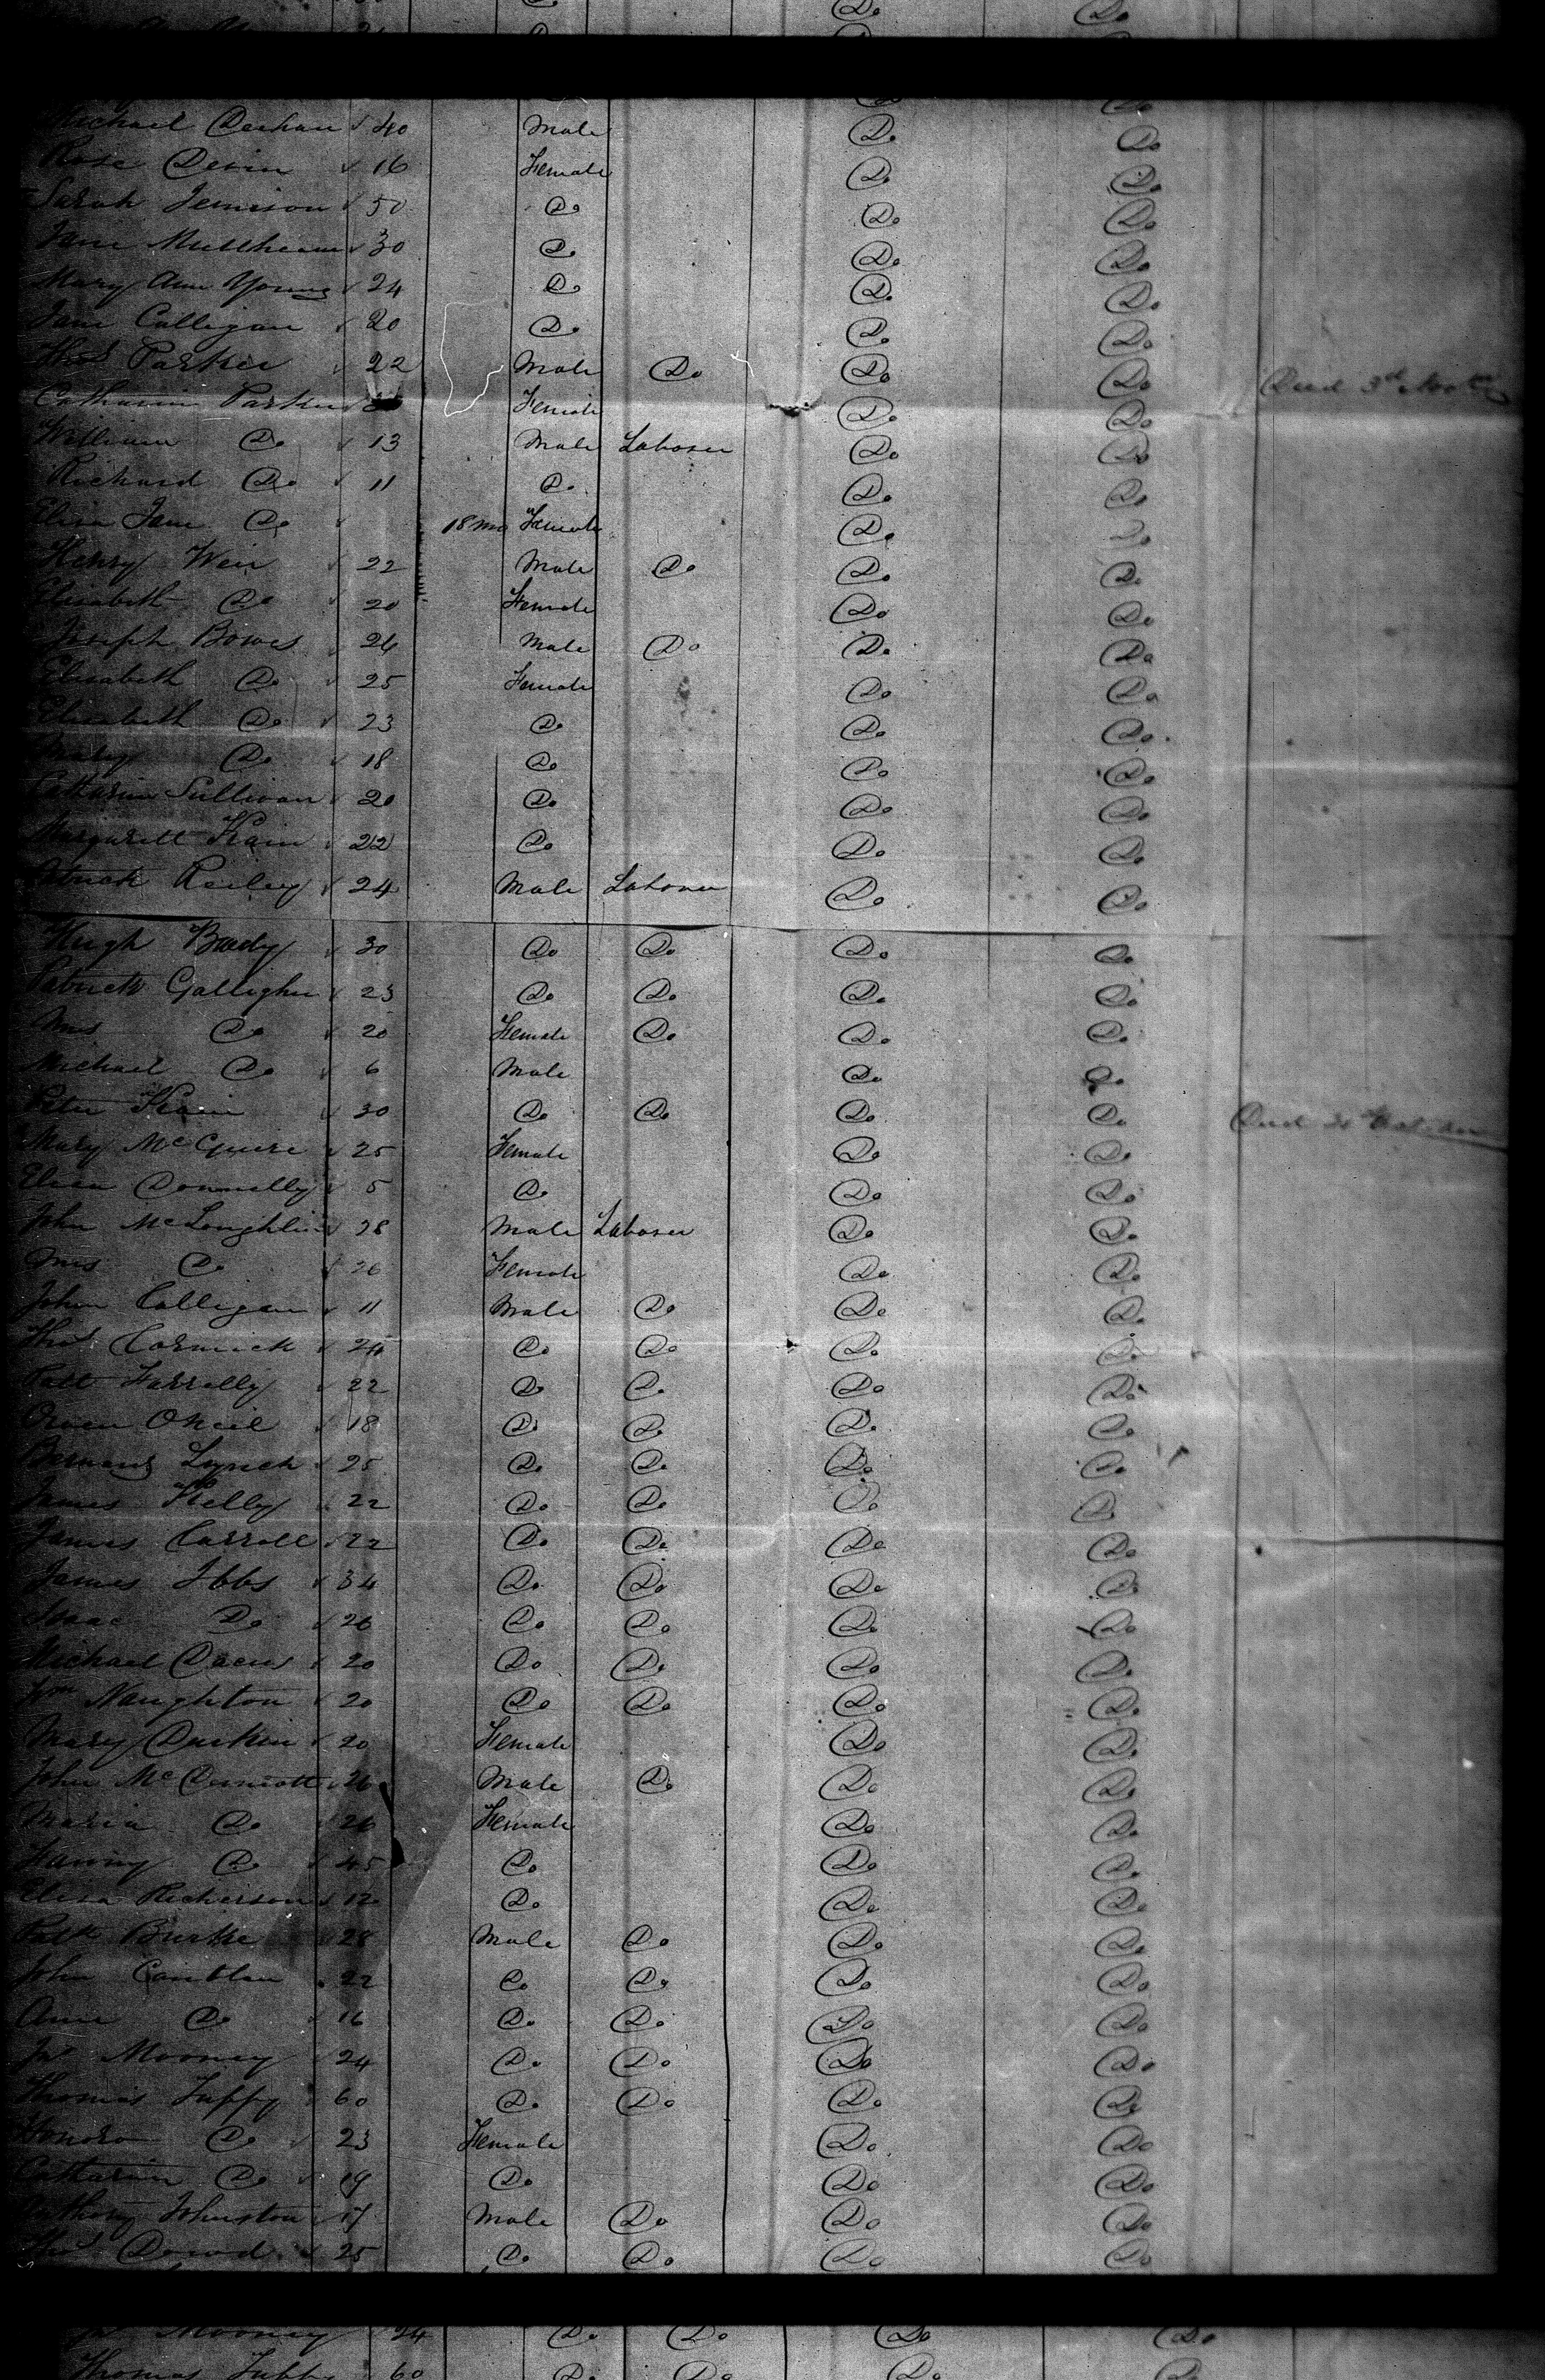 Do Do
Michael Deehan 40 Male Do Do
Rose Devin 16 Female Do Do
Sarah Jemison 50 Do Do Do
Jane 30 Do Do Do
Mary Ann Young 24 Do Do Do
Jane Calligan 20 Do Do Do
Thos Parker 22 Male Do Do Do Died 3d
Catharin Parker Female Do Do
William Do 13 Male Laborer Do Do
Richard Do 11 Do Do Do
Eliza Jane Do 18 mo Female Do Do
Henry Weir 22 Male Do Do Do
Elisabeth Do 20 Female Do Do
Joseph Bowes 24 Male Do Do Do
Elisabeth Do 25 Female Do Do
Elisabeth Do 23 Do Do Do
Mary Do 18 Do Do Do
Catharin Sullivan 20 Do Do Do
Margarett Kain 22 Do Do Do
Patrick Reiley 24 Male Laborer Do Do
Hugh Brady 30 Do Do Do Do
Patrick Galligher 23 Do Do Do Do
Mrs Do 20 Female Do Do Do
Michael Do 6 Male Do Do
Peter Kain 30 Do Do Do Do Died
Mary McGuire 25 Female Do Do
Eliza Donnelly 5 Do Do Do
John McLoughlin 28 Male Laborer Do Do
Mrs Do 26 Female Do Do
John Calligan 11 Male Do Do Do
Thos Cormick 24 Do Do Do Do
Patt Farrelly 22 Do Do Do Do
Owen ONeil 18 Do Do Do Do
Bernard Lynch 25 Do Do Do Do
James Kelly 22 Do Do Do Do
James Carroll 22 Do Do Do Do
James Ibbs 34 Do Do Do Do
Isaac Do 26 Do Do Do Do
Michael 20 Do Do Do Do
Wm Naughton 20 Do Do Do Do
Mary Durkin 20 Female Do Do
John McDermott 26 Male Do Do Do
Maria Do 26 Female Do Do
Fanny Do 45 Do Do Do
Eliza Richerson 12 Do Do Do
Patk Burke 28 Male Do Do Do
John 22 Do Do Do Do
Ann Do 16 Do Do Do Do
Jno Mooney 24 Do Do Do Do
Thomas Tuppy 60 Do Do Do Do
Honora Do 23 Female Do Do
Catharin Do 19 Do Do Do
Anthony Johnston 17 Male Do Do Do
Thos Dowd 25 Do Do Do Do
Jno Mooney 24 Do Do Do Do
Thomas 60 Do Do Do Do